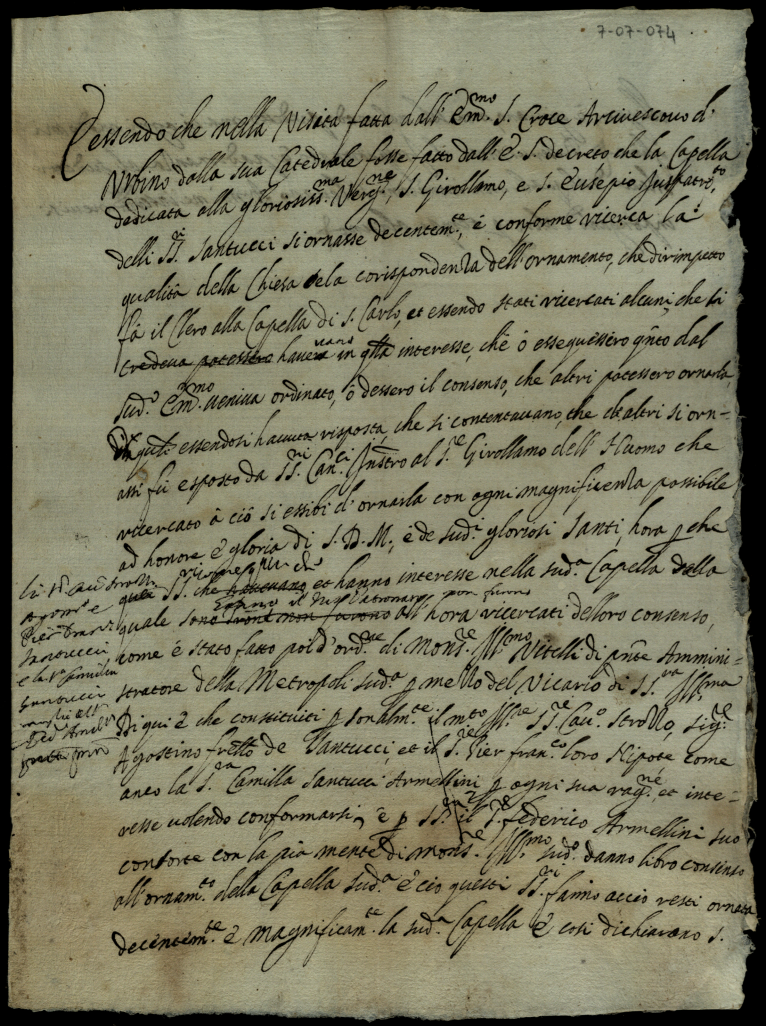 7-07-074
Essendo che nella Visita fatta dall' Em.mo S. Croce Arcivescovo d'
Urbino dalla sua Catedrale fosse fatto dall' E. S. decreto che la Capella
dedicata alla gloriosiss.ma Verg.ne, S. Girollamo, e S. Eusepio Juspatr.to
delli SS.ri Santucci si ornasse decentem.te, è conforme ricerca la
qualità della Chiesa e la corispondenza dell'ornamento, che dirimpetto
fà il Clero alla Capella di S. Carlo, et essendo stati ricercati alcuni, che si
credeva potessero havevano in q.lla interesse, che ò essequissero q.nto dal
sud.o Em.mo veniva ordinato, ò dessero il consenso, che altri potessero ornarla,
essendosi havuta risposta, che si contentavano, che d'altri si orn-
assi fù esposto da SS.ri Can.ci al S.re Girollamo dell' Huomo che
ricercato à ciò si essibì d'ornarla con ogni magnificenza possibile
ad honore è gloria di S. D. M., è de sud.i gloriosi Santi, hora p che
quei SS.ri che havevano et hanno interesse nella sud.a Capella della
non furno
quale sono all'hora ricercati del loro consenso,
come è stato fatto poi d'ord.ne di Mons.re Ill.mo Vitelli di p.nte Ammini=
stratore della Metropoli sud.a p mezzo del Vicario di SS.ria Ill.ma
Di qui è che constituiti p sonalm.te il m.to Ill.re S.re Cav.o Strozzo, sig.re
Agostino fr̃llo de Santucci, et il S.re Pier fran.co loro Nipote come
anco la S.ra Camilla Santucci Armellini p ogni sua rag.ne, et inte=
resse volendo conformarsi, è p il S.re Federico Armellini suo
consorte con la pia mente di Mons.re Ill.mo sud.o danno libro consenso
all'ornam.to della Capella sud.a è ciò questi SS.ri fanno acciò resti ornata
decentem.te è magnificam.te la sud.a Capella è così dichiarano S.
Agost.o e
Pier Franc.o
Santucci
e la S.ra Camilla
Santucci